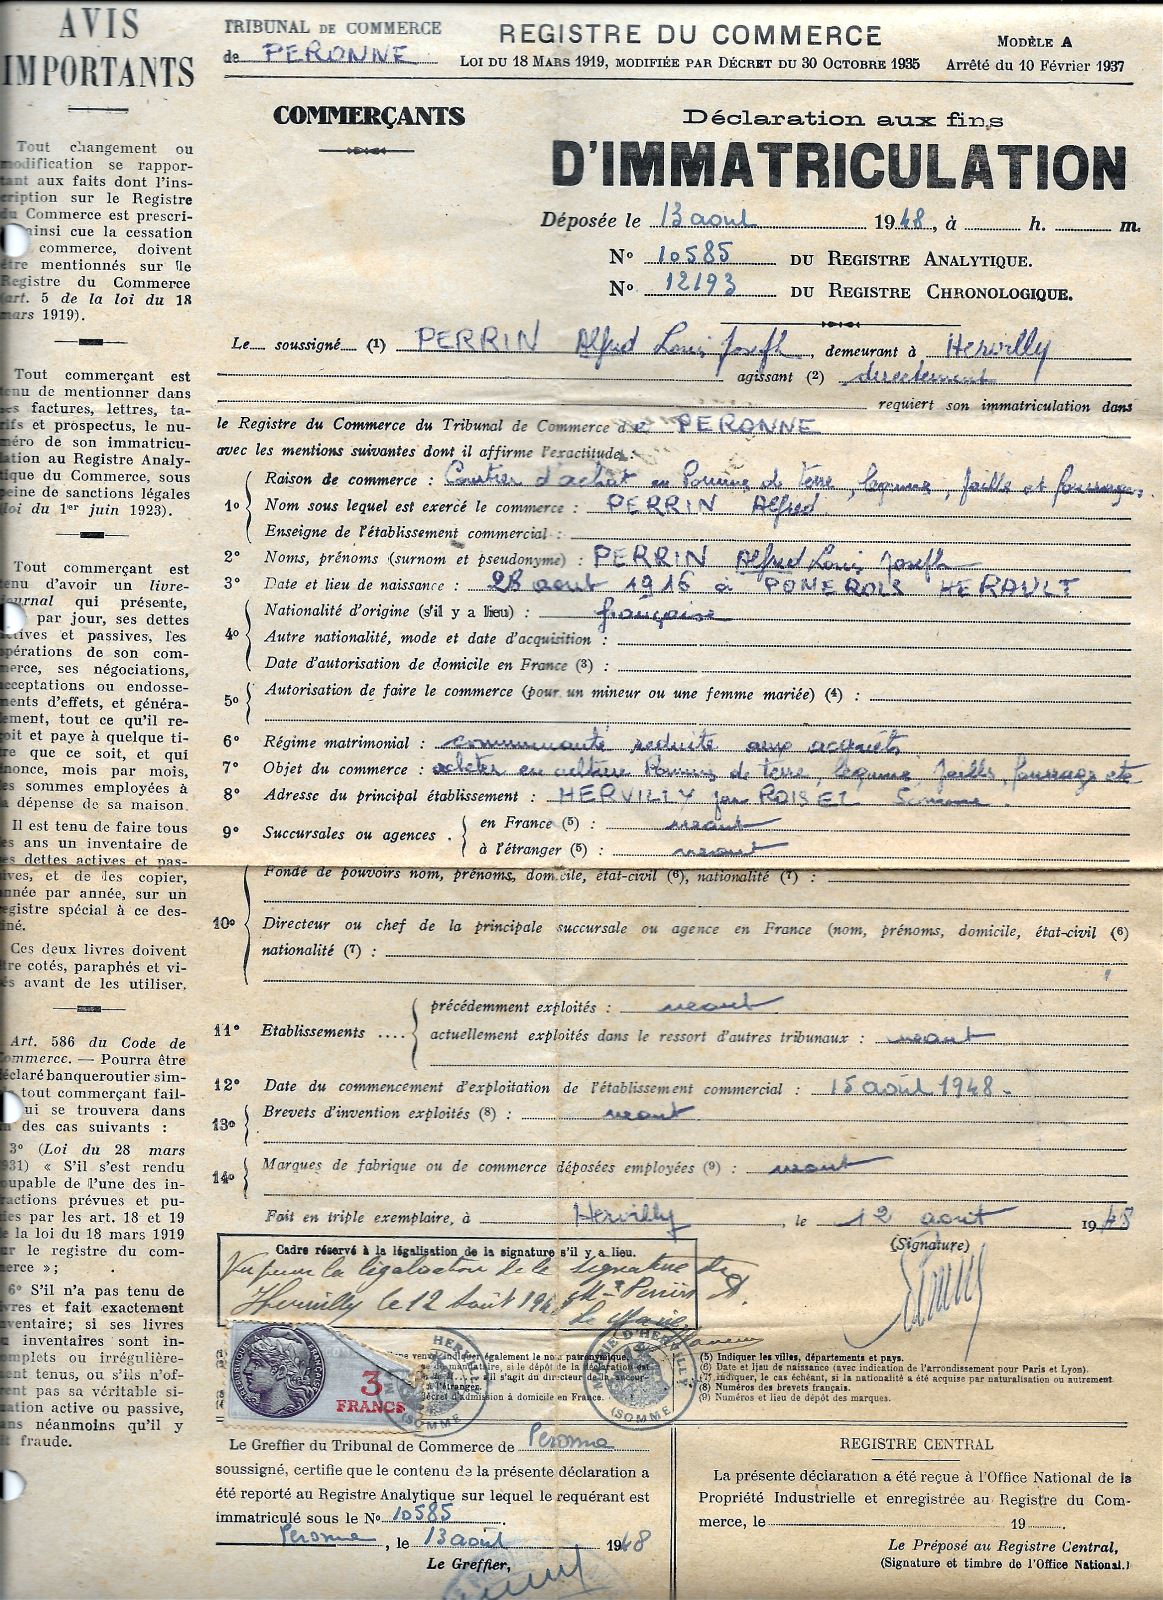 AVIS
IMPORTANTS
Tout changement ou
modification se rappor-
tant aux faits dont l'ins-
cription sur le Registre
du Commerce est prescri-
ainsi cue la cessation
commerce, doivent
être mentionnés sur le
Registre du Commerce
(art. 5 de la loi du 18
mars 1919).
Tout commerçant est
tenu de mentionner dans
ses factures, lettres, ta-
rifs et prospectus, le nu-
méro de son immatricu-
lation au Registre Analy-
tique du Commerce, sous
peine de sanctions légales
(loi du 1er juin 1923).
Tout commerçant est
tenu d'avoir un livre-
journal qui présente,
par jour, ses dettes
actives et passives, les
opérations de son com-
merce, ses négociations,
acceptations ou endosse-
ments d'effets, et généra-
lement, tout ce qu'il re-
çoit et paye à quelque ti-
tre que ce soit, et qui
énonce, mois par mois,
les sommes employées à
la dépense de sa maison.
Il est tenu de faire tous
les ans un inventaire de
ses dettes actives et pas-
sives, et de les copier,
année par année, sur un
registre spécial à ce des-
tiné.
Ces deux livres doivent
être cotés, paraphés et vi-
sés avant de les utiliser.
Art. 586 du Code de
Commerce. — Pourra être
déclaré banqueroutier sim-
tout commerçant fail-
qui se trouvera dans
des cas suivants :
3° (Loi du 28 mars
1931) « S'il s'est rendu
coupable de l'une des in-
fractions prévues et pu-
nies par les art. 18 et 19
de la loi du 18 mars 1919
sur le registre du com-
merce » ;
6° S'il n'a pas tenu de
livres et fait exactement
inventaire; si ses livres
ou inventaires sont in-
complets ou irrégulière-
ment tenus, ou s'ils n'of-
frent pas sa véritable si-
tuation active ou passive,
sans néanmoins qu'il y
ait fraude.
TRIBUNAL DE COMMERCE
de PERONNE
REGISTRE DU COMMERCE
LOI DU 18 MARS 1919, MODIFIÉE PAR DÉCRET DU 30 OCTOBRE 1935
MODÈLE A
Arrêté du 10 Février 1937
COMMERÇANTS
Déclaration aux fins
D'IMMATRICULATION
Déposée le 13 aout 1948, à h. m.
N° 10585 DU REGISTRE ANALYTIQUE.
N° 12193 DU REGISTRE CHRONOLOGIQUE.
Le soussigné (1) PERRIN Alfred Louis Joseph, demeurant à Hervilly
agissant (2) directement
requiert son immatriculation dans
le Registre du Commerce du Tribunal de Commerce de PERONNE
avec les mentions suivantes dont il affirme l'exactitude :
1° Raison de commerce : Courtier d'achat en Pommes de terre, légumes, pailles et fourrages.
Nom sous lequel est exercé le commerce : PERRIN Alfred
Enseigne de l'établissement commercial :
2° Noms, prénoms (surnom et pseudonyme) : PERRIN Alfred Louis Joseph
3° Date et lieu de naissance : 28 aout 1916 à POMEROLS HERAULT
4° Nationalité d'origine (s'il y a lieu) : française
Autre nationalité, mode et date d'acquisition :
Date d'autorisation de domicile en France (3) :
5° Autorisation de faire le commerce (pour un mineur ou une femme mariée) (4) :
6° Régime matrimonial : communauté réduite aux acquêts
7° Objet du commerce : acheter en culture Pommes de terre, légumes, pailles, fourrages etc
8° Adresse du principal établissement : HERVILLY par ROISEL Somme.
9° Succursales ou agences . en France (5) : néant
à l'étranger (5) : néant
10° Fondé de pouvoirs nom, prénoms, domicile, état-civil (6), nationalité (7) :
Directeur ou chef de la principale succursale ou agence en France (nom, prénoms, domicile, état-civil (6)
nationalité (7) :
11° Etablissements .... précédemment exploités : néant
actuellement exploités dans le ressort d'autres tribunaux : néant
12° Date du commencement d'exploitation de l'établissement commercial : 15 août 1948.
13° Brevets d'invention exploités (8) : néant
14° Marques de fabrique ou de commerce déposées employées (9) : néant
Fait en triple exemplaire, à Hervilly, le 12 août 1948
(Signature)
Cadre réservé à la légalisation de la signature s'il y a lieu.
Vu pour la légalisation de la signature de
Mr Perrin A.
Hervilly le 12 Août 1948
Le Maire,
3
FRANCS
MAIRIE D'HERVILLY
(SOMME)
indiquer également le nom patronymique.
(5) Indiquer les villes, départements et pays.
(6) Date et lieu de naissance (avec indication de l'arrondissement pour Paris et Lyon).
(7) Indiquer, le cas échéant, si la nationalité a été acquise par naturalisation ou autrement
(8) Numéros des brevets français.
(9) Numéros et lieu de dépôt des marques.
Le Greffier du Tribunal de Commerce de Peronne
soussigné, certifie que le contenu de la présente déclaration
a été reporté au Registre Analytique sur lequel le requérant est
immatriculé sous le N° 10585
Peronne, le 13 août 1948
Le Greffier,
REGISTRE CENTRAL
La présente déclaration a été reçue à l'Office National de la
Propriété Industrielle et enregistrée au Registre du Com-
merce, le 19 .
Le Préposé au Registre Central,
(Signature et timbre de l'Office National.)